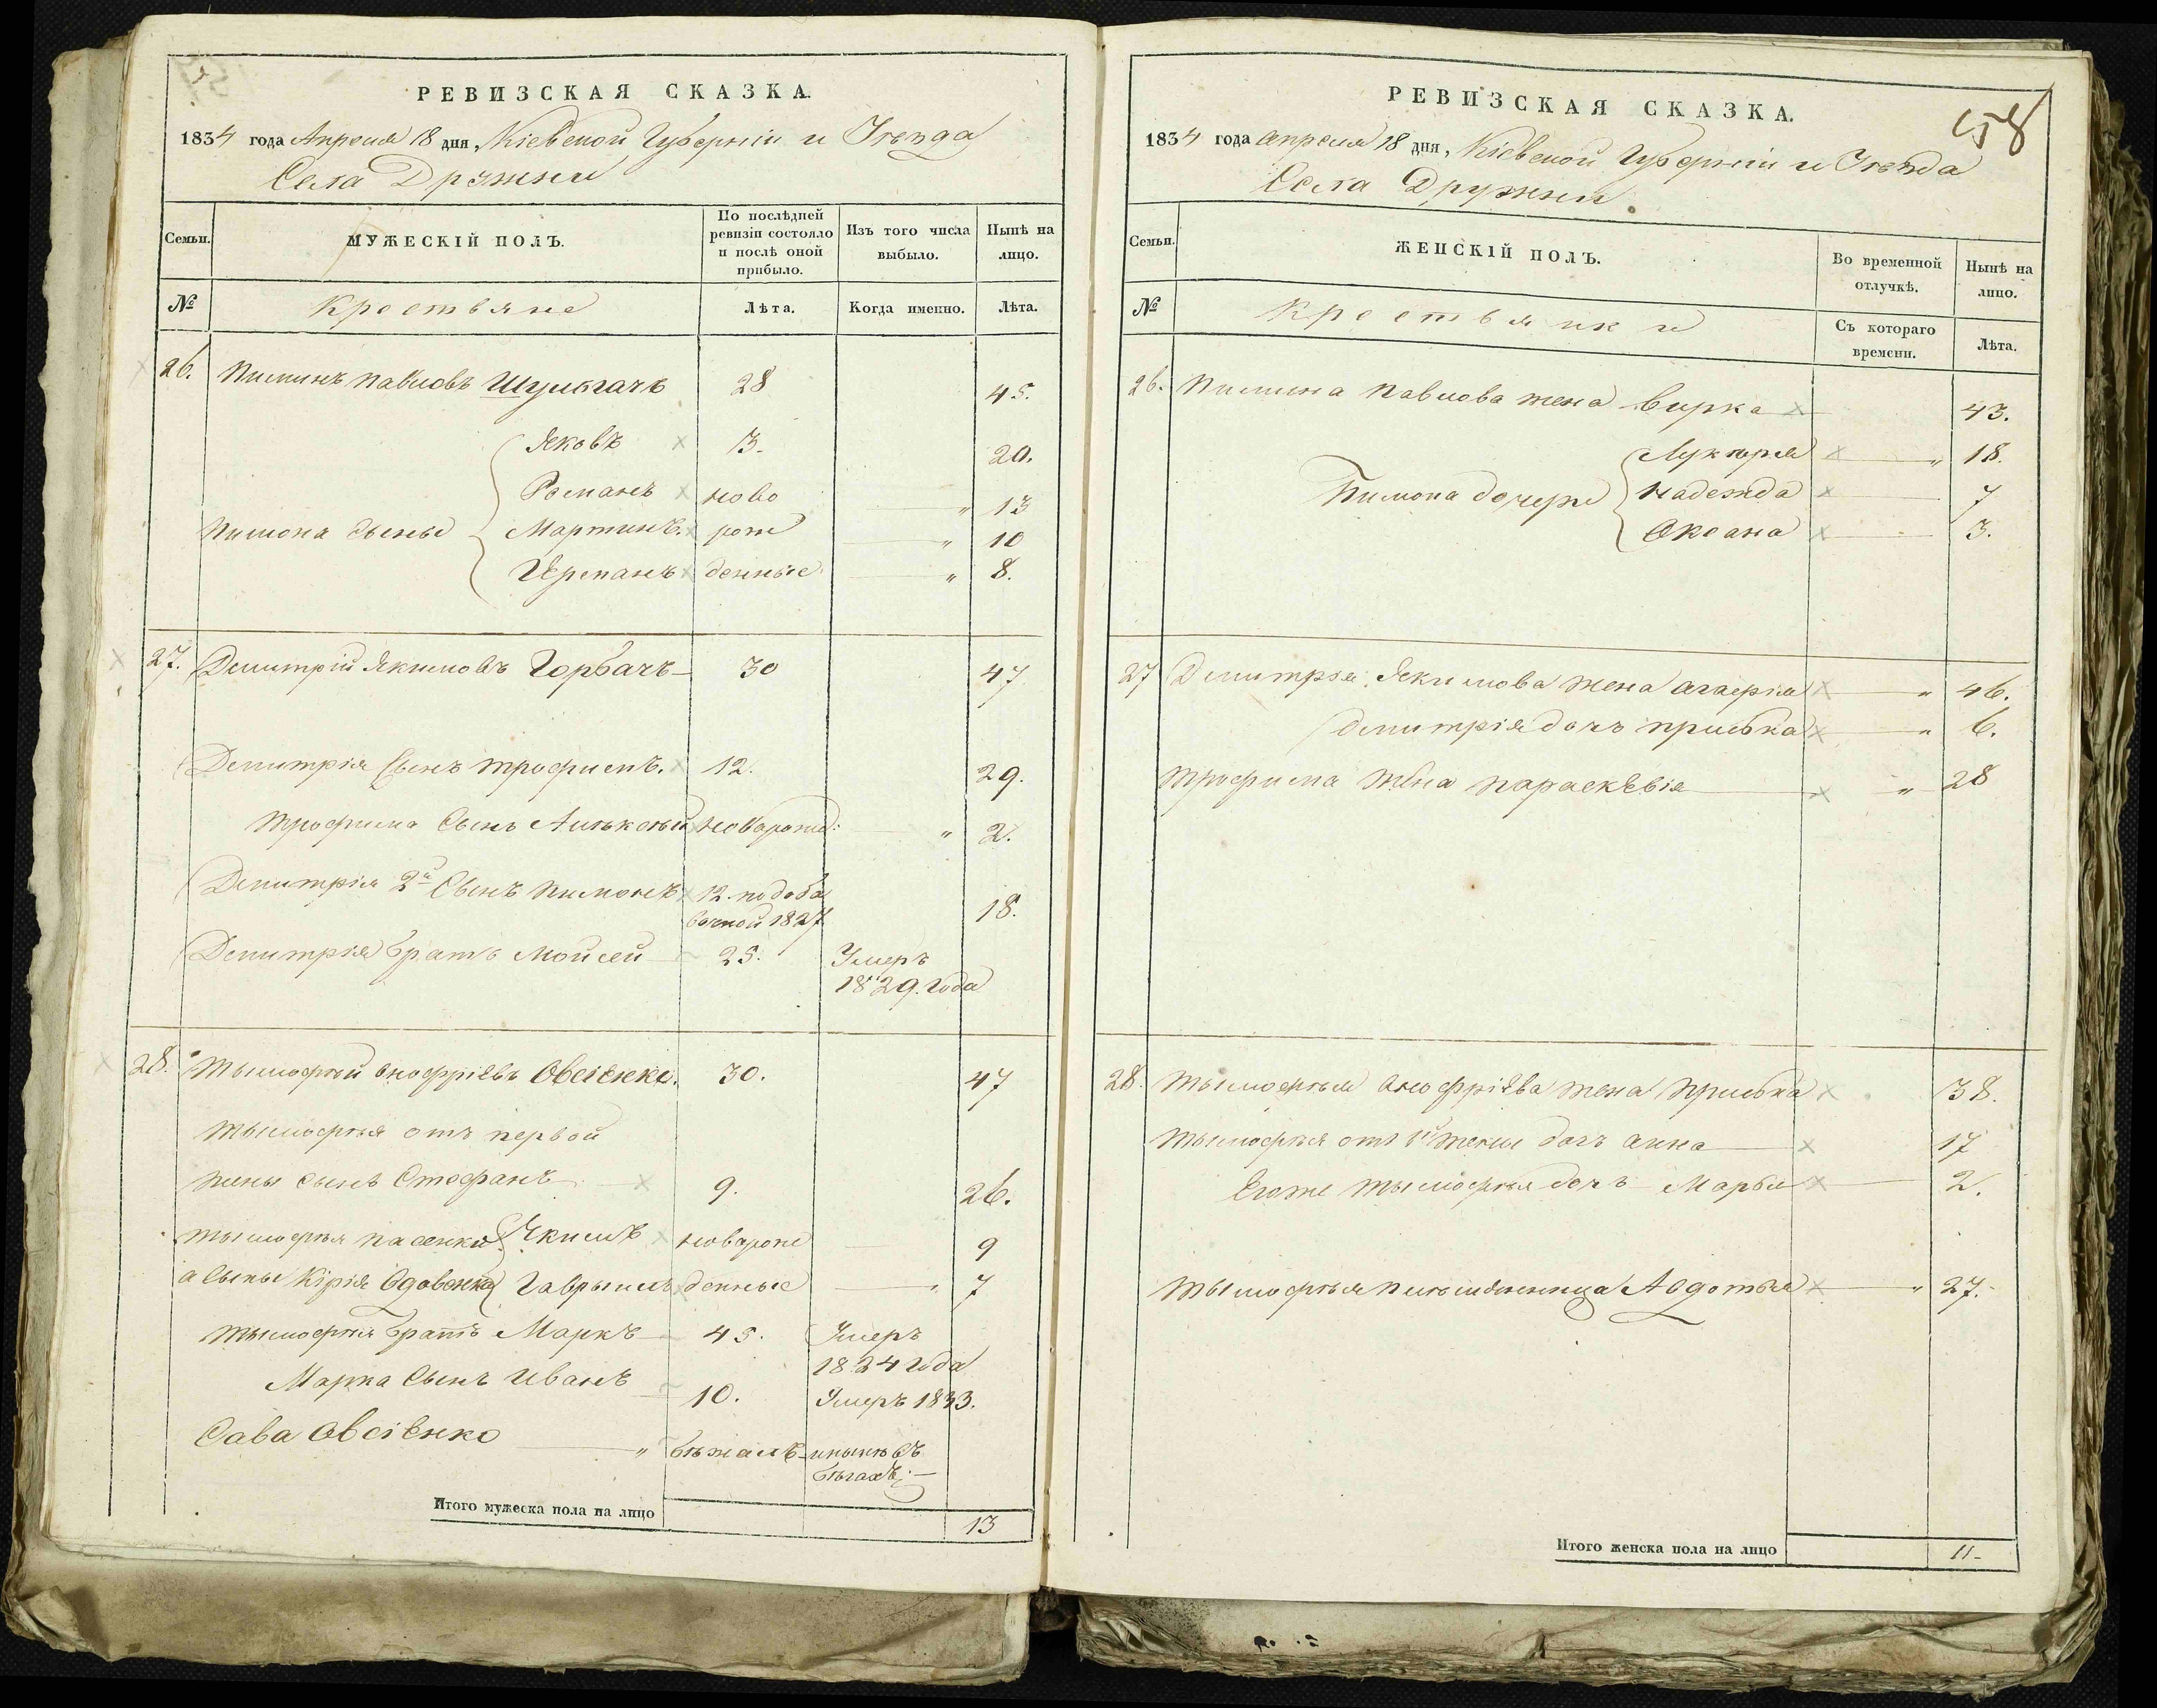 РЕВИЗСКАЯ СКАЗКА.
1834 года Апреля 18 дня, Кіевской Губерніи и Уезда
Села Дружни
Семьи. МУЖЕСКІЙ ПОЛЪ. По послѣдней ревизіи состояло и послѣ оной прибыло. Изъ того числа выбыло. Нынѣ на лицо.
№ Крестьяне Лѣта. Когда именно. Лѣта.
26. Пиминъ Павловъ Шулгачъ 28 45.
Яковъ 3. 20.
Романъ ново " 13
Пимона сыны Мартинъ. рож " 10
Германъ денные " 8.
27. Димитрій Якимовъ Горбачъ 30 47
Димитрія Сынъ Трофимъ. 12. 29.
Трофима Сынъ Алексей новорожд: " 2.
Димитрія 2й Сынъ Пимонъ 12. по доба 18.
вочной 1827
Димитрія братъ Мойсей 25. Умеръ
1829. года
28. Тымофей Онофріевъ Овсіенко. 30. 47
Тымофея отъ первой
жены сынъ Стефанъ 9. 26.
Тымофея пасенки Якимъ новорож 9
а Сыны Кірія Вдовенка Гаврыилъ денные " 7
Тымофея братъ Маркъ 45. Умеръ
1824 года
Марка Сынъ Иванъ 10. Умеръ 1833.
Сава Овсіенко " бежалъ и ныне въ
бегахъ:
Итого мужеска пола на лицо 13
58
РЕВИЗСКАЯ СКАЗКА.
1834 года апреля 18 дня, Кіевской Губерніи и Уезда
Села Дружни
Семьи. ЖЕНСКІЙ ПОЛЪ. Во временной отлучкѣ. Нынѣ на лицо.
№ Крестьянки Съ котораго времени. Лѣта.
26. Пимина Павлова жена Вирка 43.
Лукерия " 18.
Пимона дочери Надежда 7
Оксана 3.
27 Димитрія Якимова жена Агафія " 46.
Димитрія дочъ Приська " 6.
Трофима жена Параскевія " 28
28. Тымофея Онофріева жена Приська 38.
Тымофея отъ 1й жены дочъ Анна 17
Егоже Тымофея дочъ Марья 2.
Тымофея племянница Авдотья " 27.
Итого женска пола на лицо 11